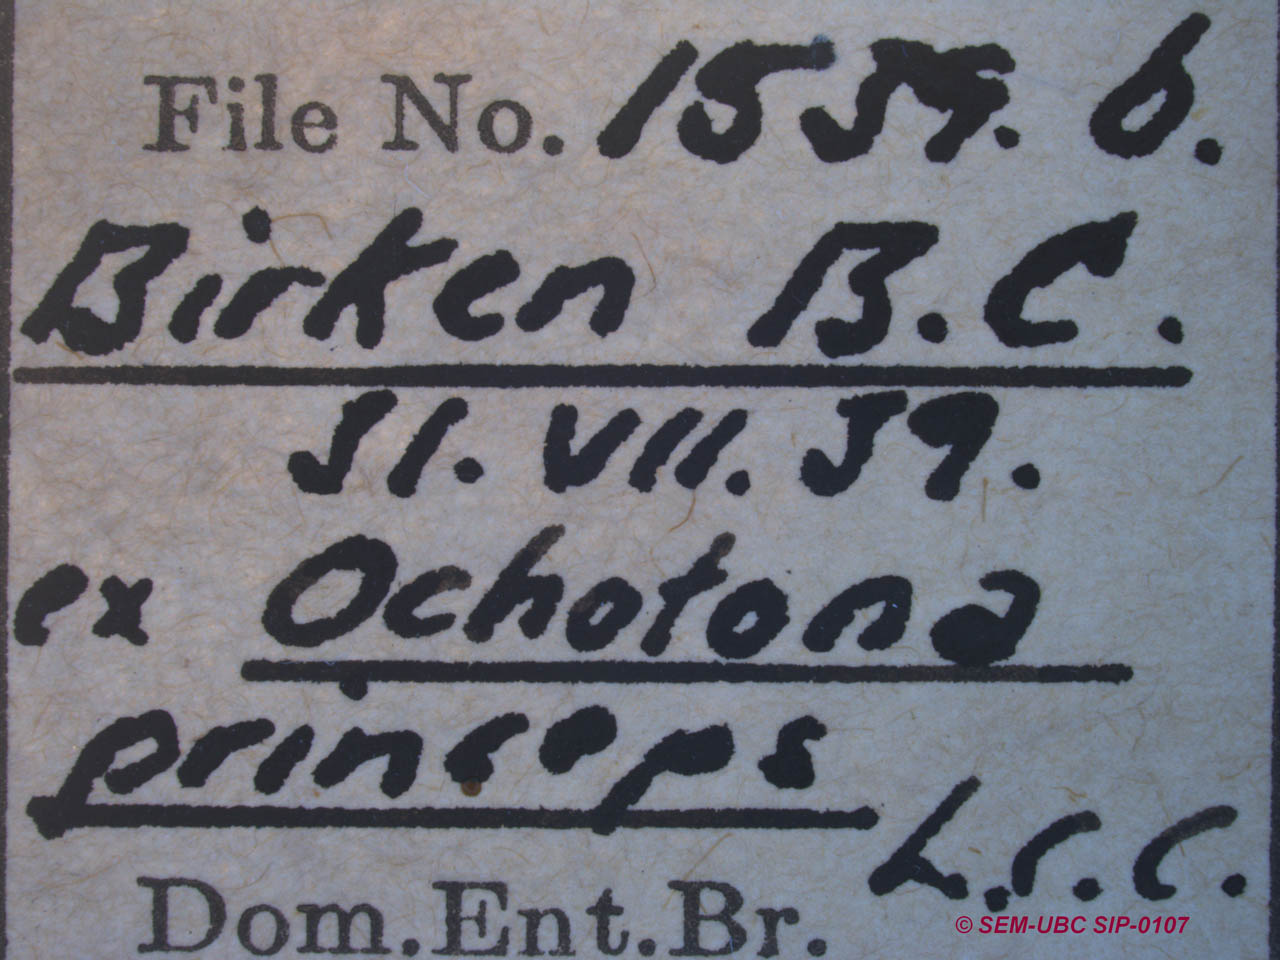 File No. 1537. b.
Birken B.C.
31. VII. 39.
ex Ochotona
princeps
L.C.C.
Dom.Ent.Br.
© SEM-UBC SIP-0107